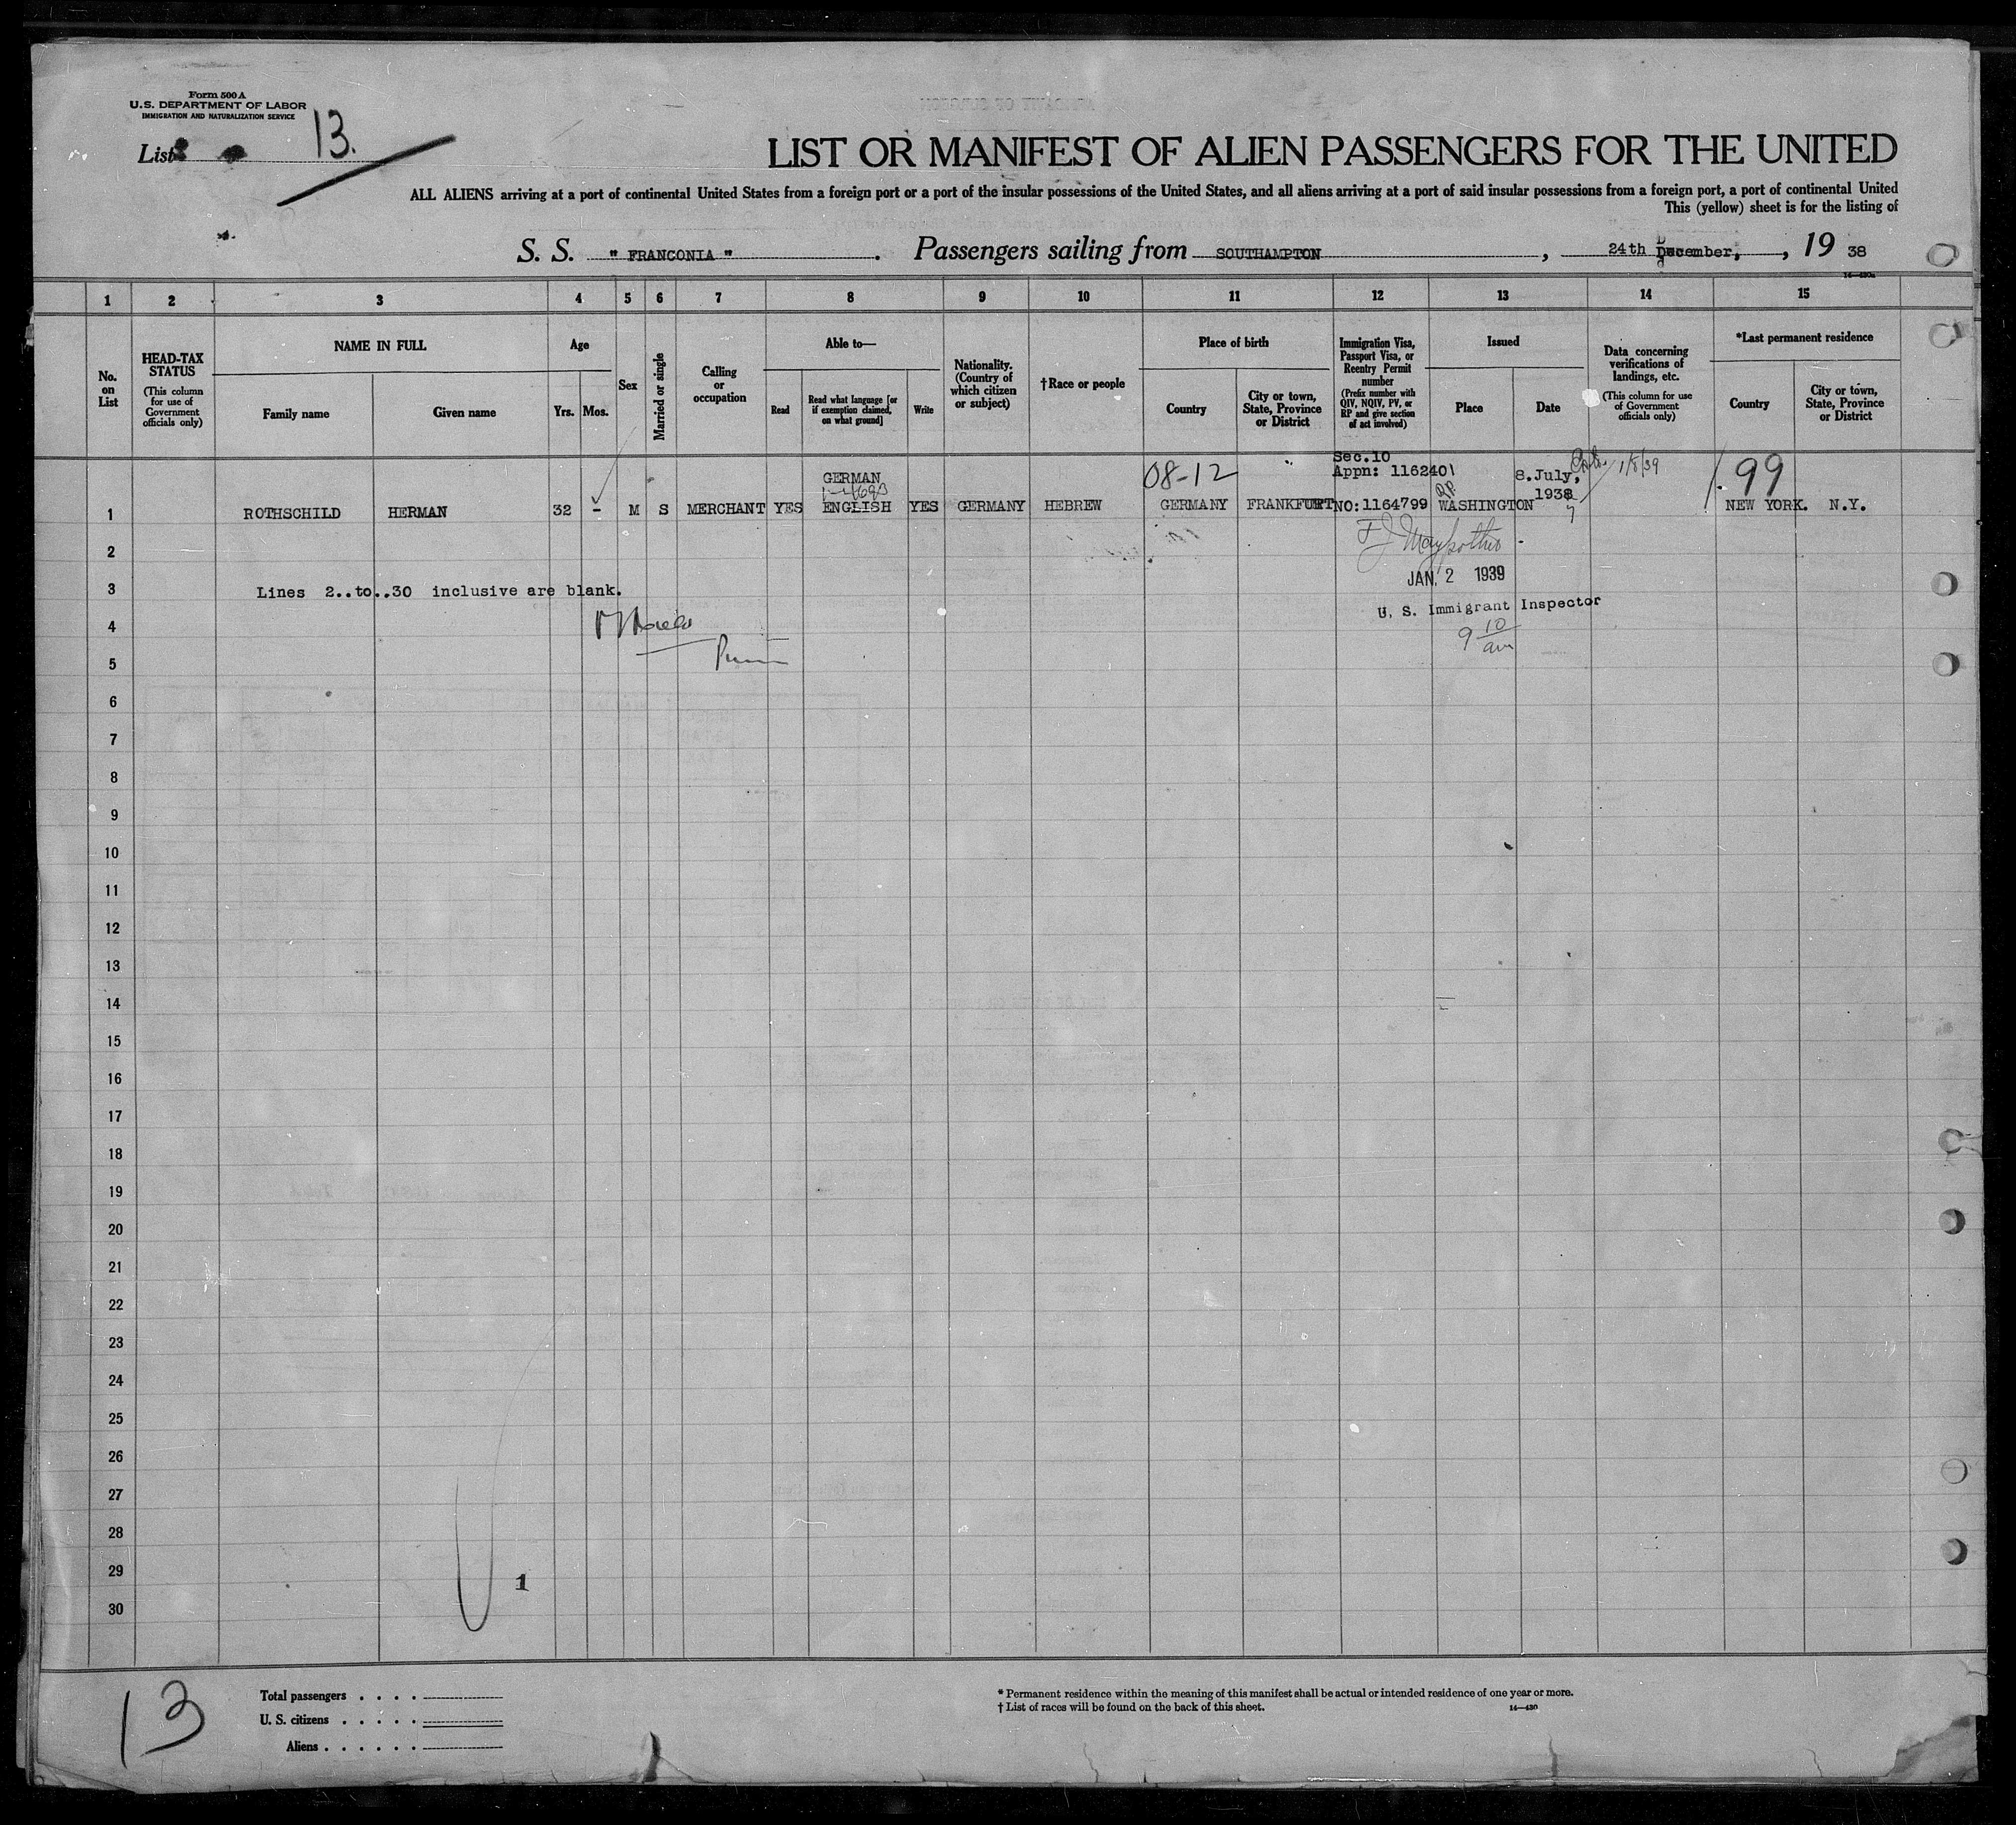 Form 500 A
U.S. DEPARTMENT OF LABOR
IMMIGRATION AND NATURALIZATION SERVICE
List 13.
LIST OR MANIFEST OF ALIEN PASSENGERS FOR THE UNITED
ALL ALIENS arriving at a port of continental United States from a foreign port or a port of the insular possessions of the United States, and all aliens arriving at a port of said insular possessions from a foreign port, a port of continental United
This (yellow) sheet is for the listing of
S. S. " FRANCONIA ". Passengers sailing from SOUTHAMPTON, 24th December, , 19 38
14—430a
1 2 3 4 5 6 7 8 9 10 11 12 13 14 15
No. on List
HEAD-TAX STATUS
(This column for use of Government officials only)
NAME IN FULL
Family name
Given name
Age
Yrs. Mos.
Sex
Married or single
Calling or occupation
Able to—
Read
Read what language [or if exemption claimed, on what ground]
Write
Nationality. (Country of which citizen or subject)
†Race or people
Place of birth
Country
City or town, State, Province or District
Immigration Visa, Passport Visa, or Reentry Permit number
(Prefix number with QIV, NQIV, PV, or RP and give section of act involved)
Issued
Place
Date
Data concerning verifications of landings, etc.
(This column for use of Government officials only)
*Last permanent residence
Country
City or town, State, Province or District
08-12
Sec.10
Appn: 116240
8.July,
1/5/39
99
GERMAN
1938
1 ROTHSCHILD HERMAN 32 - M S MERCHANT YES ENGLISH YES GERMANY HEBREW GERMANY FRANKFURT NO:1164799 RP WASHINGTON NEW YORK. N.Y.
2
3 Lines 2..to..30 inclusive are blank.
JAN. 2 1939
4
U. S. Immigrant Inspector
9 10 am
5
6
7
8
9
10
11
12
13
14
15
16
17
18
19
20
21
22
23
24
25
26
27
28
29
1
30
13
Total passengers . . . .
U. S. citizens . . . . .
Aliens . . . . . .
* Permanent residence within the meaning of this manifest shall be actual or intended residence of one year or more.
† List of races will be found on the back of this sheet.
14—430